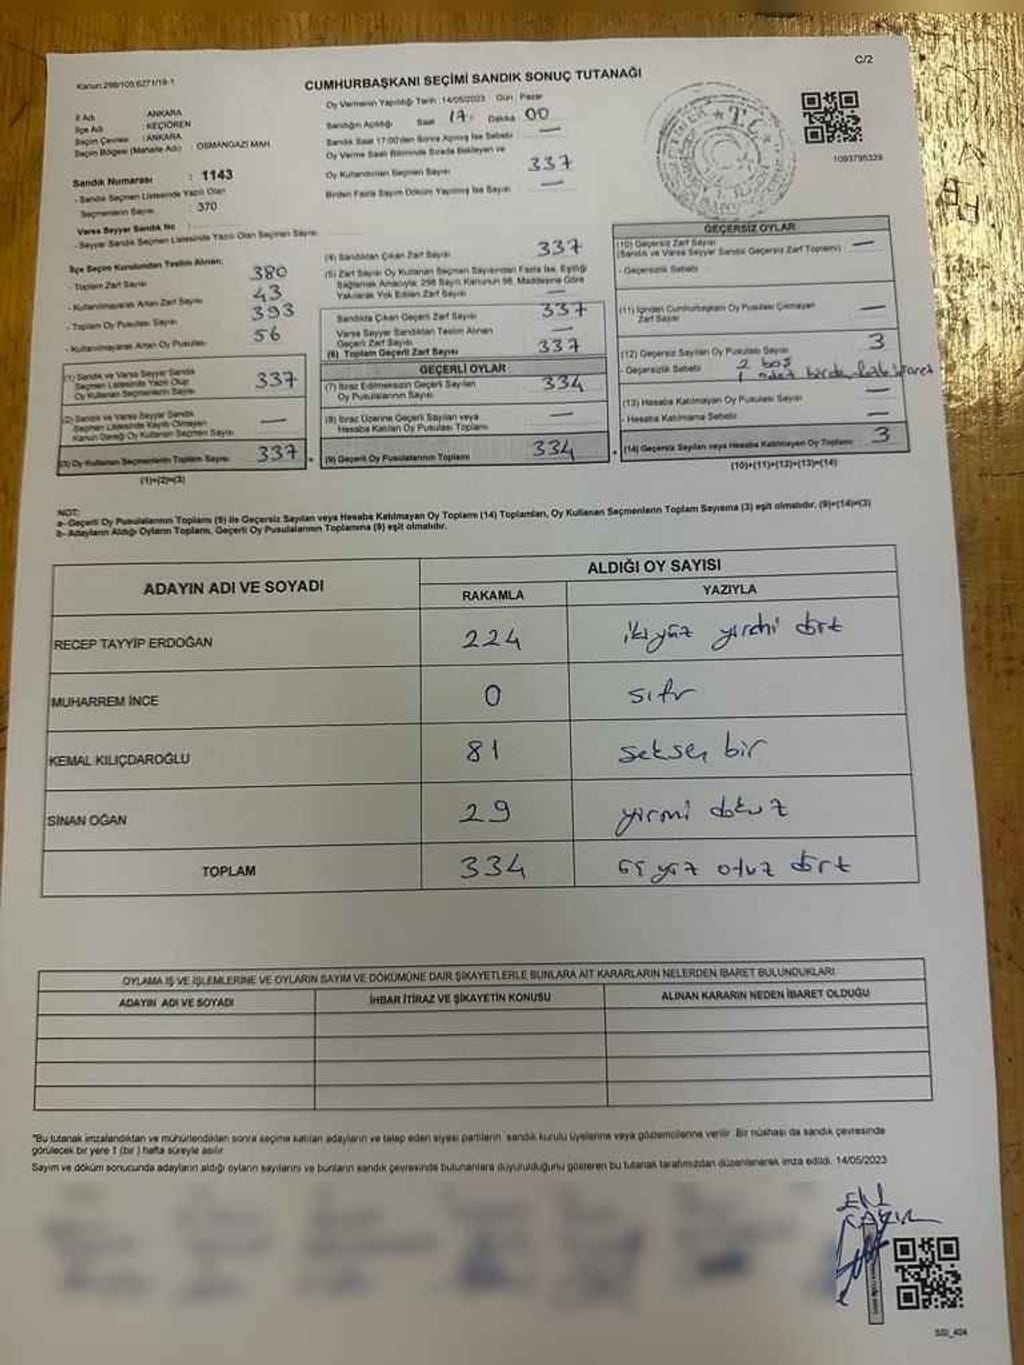 C/2
Kanun:298/105;6271/18-1
CUMHURBAŞKANI SEÇİMİ SANDIK SONUÇ TUTANAĞI
İl Adı : ANKARA
İlçe Adı : KEÇİÖREN
Seçim Çevresi : ANKARA
Seçim Bölgesi (Mahalle Adı) : OSMANGAZI MAH
Sandık Numarası : 1143
- Sandık Seçmen Listesinde Yazılı Olan
Seçmenlerin Sayısı : 370
Varsa Seyyar Sandık No :
- Seyyar Sandık Seçmen Listesinde Yazılı Olan Seçmen Sayısı:
Oy Vermenin Yapıldığı Tarih :14/05/2023 Gün : Pazar
Sandığın Açıldığı Saat 17: Dakika 00
Sandık Saat 17:00'den Sonra Açılmış İse Sebebi —
Oy Verme Saati Bitiminde Sırada Bekleyen ve
Oy Kullandırılan Seçmen Sayısı 337
Birden Fazla Sayım Döküm Yapılmış İse Sayısı —
T.C.
1093795329
İlçe Seçim Kurulundan Teslim Alınan;
- Toplam Zarf Sayısı 380
- Kullanılmayarak Artan Zarf Sayısı 43
- Toplam Oy Pusulası Sayısı 393
- Kullanılmayarak Artan Oy Pusulası 56
(1) Sandık ve Varsa Seyyar Sandık
Seçmen Listesinde Yazılı Olup
Oy Kullanan Seçmenlerin Sayısı 337
(2) Sandık ve Varsa Seyyar Sandık
Seçmen Listesinde Kayıtlı Olmayan
Kanun Gereği Oy Kullanan Seçmen Sayısı —
(3) Oy Kullanan Seçmenlerin Toplam Sayısı 337
(1)+(2)=(3)
(4) Sandıktan Çıkan Zarf Sayısı 337
(5) Zarf Sayısı Oy Kullanan Seçmen Sayısından Fazla İse, Eşitliği
Sağlamak Amacıyla; 298 Sayılı Kanunun 98. Maddesine Göre
Yakılarak Yok Edilen Zarf Sayısı —
Sandıkta Çıkan Geçerli Zarf Sayısı 337
Varsa Seyyar Sandıktan Teslim Alınan
Geçerli Zarf Sayısı —
(6) Toplam Geçerli Zarf Sayısı 337
GEÇERLİ OYLAR
(7) İtiraz Edilmeksizin Geçerli Sayılan
Oy Pusulasının Sayısı 334
(8) İtiraz Üzerine Geçerli Sayılan veya
Hesaba Katılan Oy Pusulası Toplamı —
(9) Geçerli Oy Pusulalarının Toplamı 334
GEÇERSİZ OYLAR
(10) Geçersiz Zarf Sayısı
(Sandık ve Varsa Seyyar Sandık Geçersiz Zarf Toplamı) —
- Geçersizlik Sebebi
(11) İçinden Cumhurbaşkanı Oy Pusulası Çıkmayan
Zarf Sayısı —
(12) Geçersiz Sayılan Oy Pusulası Sayısı 3
- Geçersizlik Sebebi 2 boş
1 adet birden fazla işaret
(13) Hesaba Katılmayan Oy Pusulası Sayısı —
- Hesaba Katılmama Sebebi —
(14) Geçersiz Sayılan veya Hesaba Katılmayan Oy Toplamı 3
(10)+(11)+(12)+(13)=(14)
NOT:
a- Geçerli Oy Pusulalarının Toplamı (9) ile Geçersiz Sayılan veya Hesaba Katılmayan Oy Toplamı (14) Toplamları, Oy Kullanan Seçmenlerin Toplam Sayısına (3) eşit olmalıdır. (9)+(14)=(3)
b- Adayların Aldığı Oyların Toplamı, Geçerli Oy Pusulalarının Toplamına (9) eşit olmalıdır.
ADAYIN ADI VE SOYADI
ALDIĞI OY SAYISI
RAKAMLA YAZIYLA
RECEP TAYYİP ERDOĞAN 224 iki yüz yirmi dört
MUHARREM İNCE 0 sıfır
KEMAL KILIÇDAROĞLU 81 seksen bir
SİNAN OĞAN 29 yirmi dokuz
TOPLAM 334 üç yüz otuz dört
OYLAMA İŞ VE İŞLEMLERİNE VE OYLARIN SAYIM VE DÖKÜMÜNE DAİR ŞİKAYETLERLE BUNLARA AİT KARARLARIN NELERDEN İBARET BULUNDUKLARI
ADAYIN ADI VE SOYADI İHBAR İTİRAZ VE ŞİKAYETİN KONUSU ALINAN KARARIN NEDEN İBARET OLDUĞU
*Bu tutanak imzalandıktan ve mühürlendikten sonra seçime katılan adayların ve talep eden siyasi partilerin sandık kurulu üyelerine veya gözlemcilerine verilir. Bir nüshası da sandık çevresinde
görülecek bir yere 1 (bir) hafta süreyle asılır.
Sayım ve döküm sonucunda adayların aldığı oyların sayılarını ve bunların sandık çevresinde bulunanlara duyurulduğunu gösteren bu tutanak tarafımızdan düzenlenerek imza edildi. 14/05/2023
SSI_404